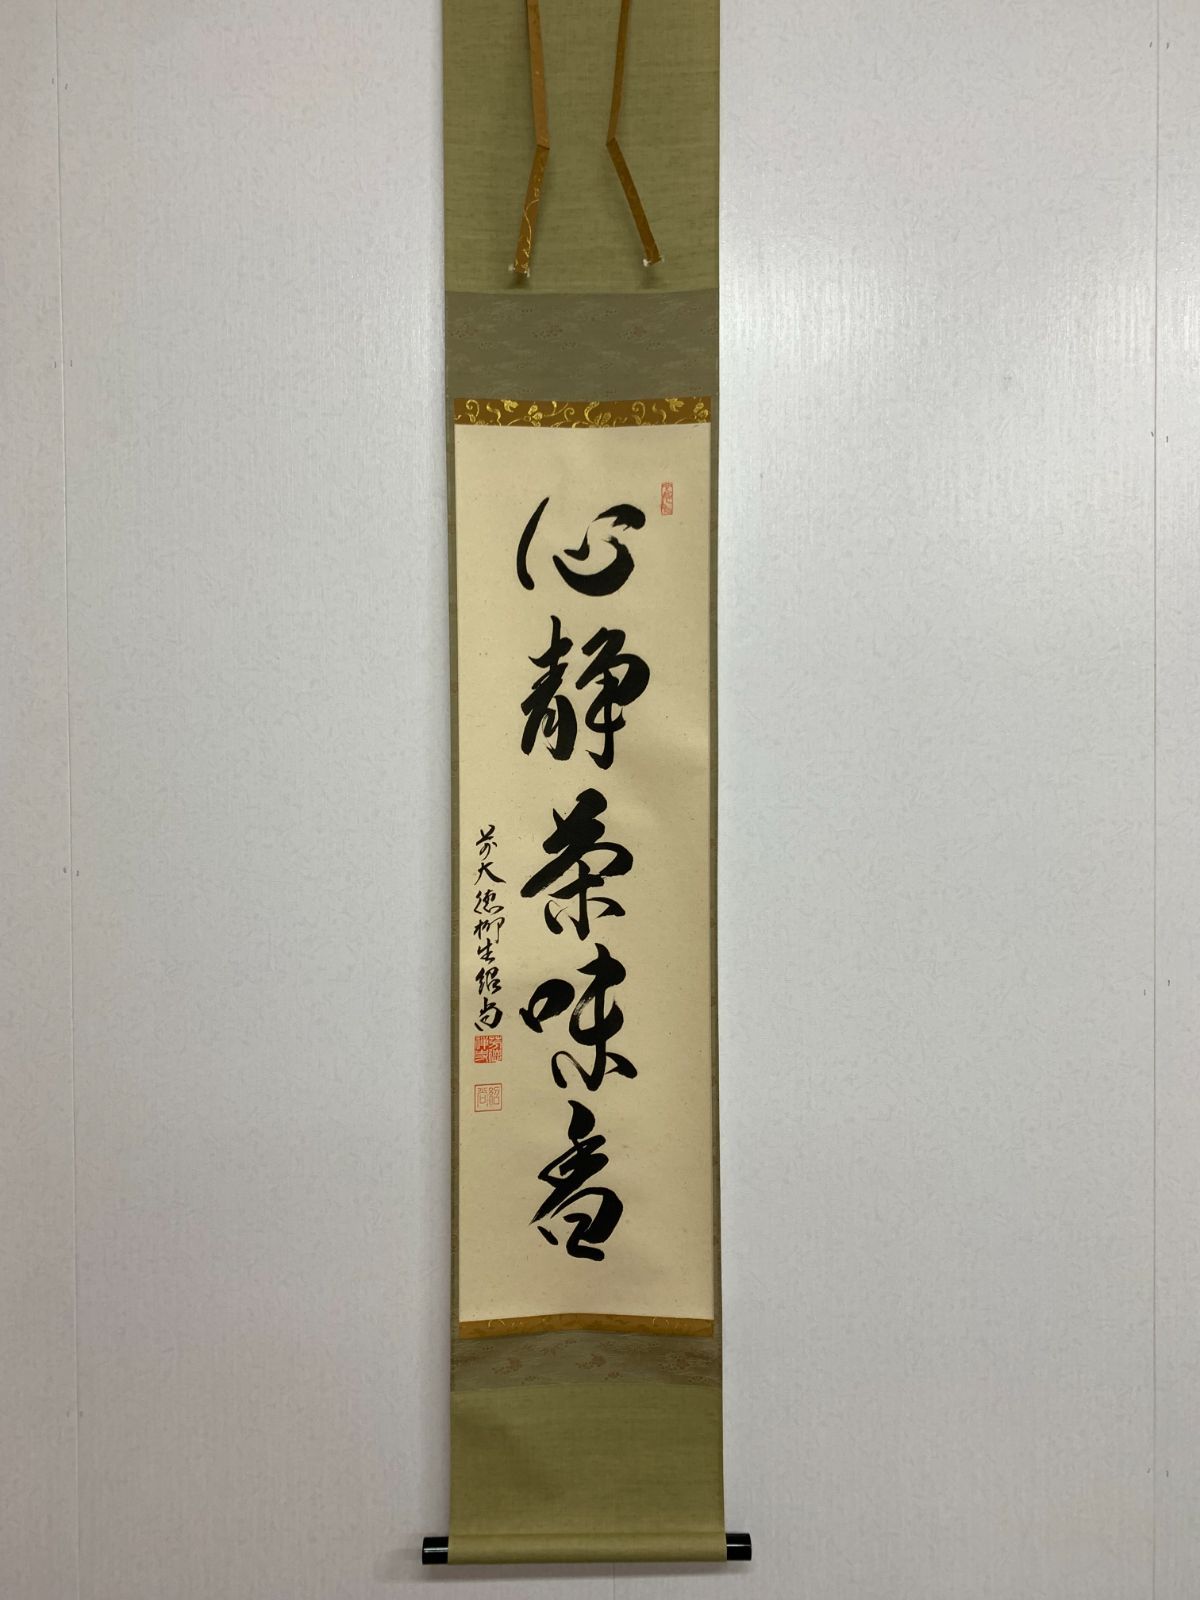 心静茶味香
前大徳柳生紹尚
紹尚